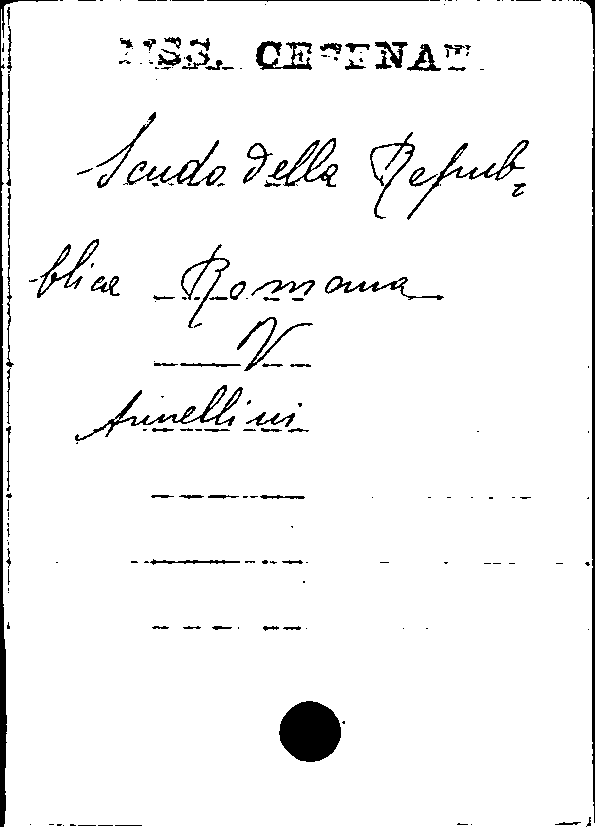 MSS. CESENAT.
Scudo della Repub-
blica Romana
V
Annellini